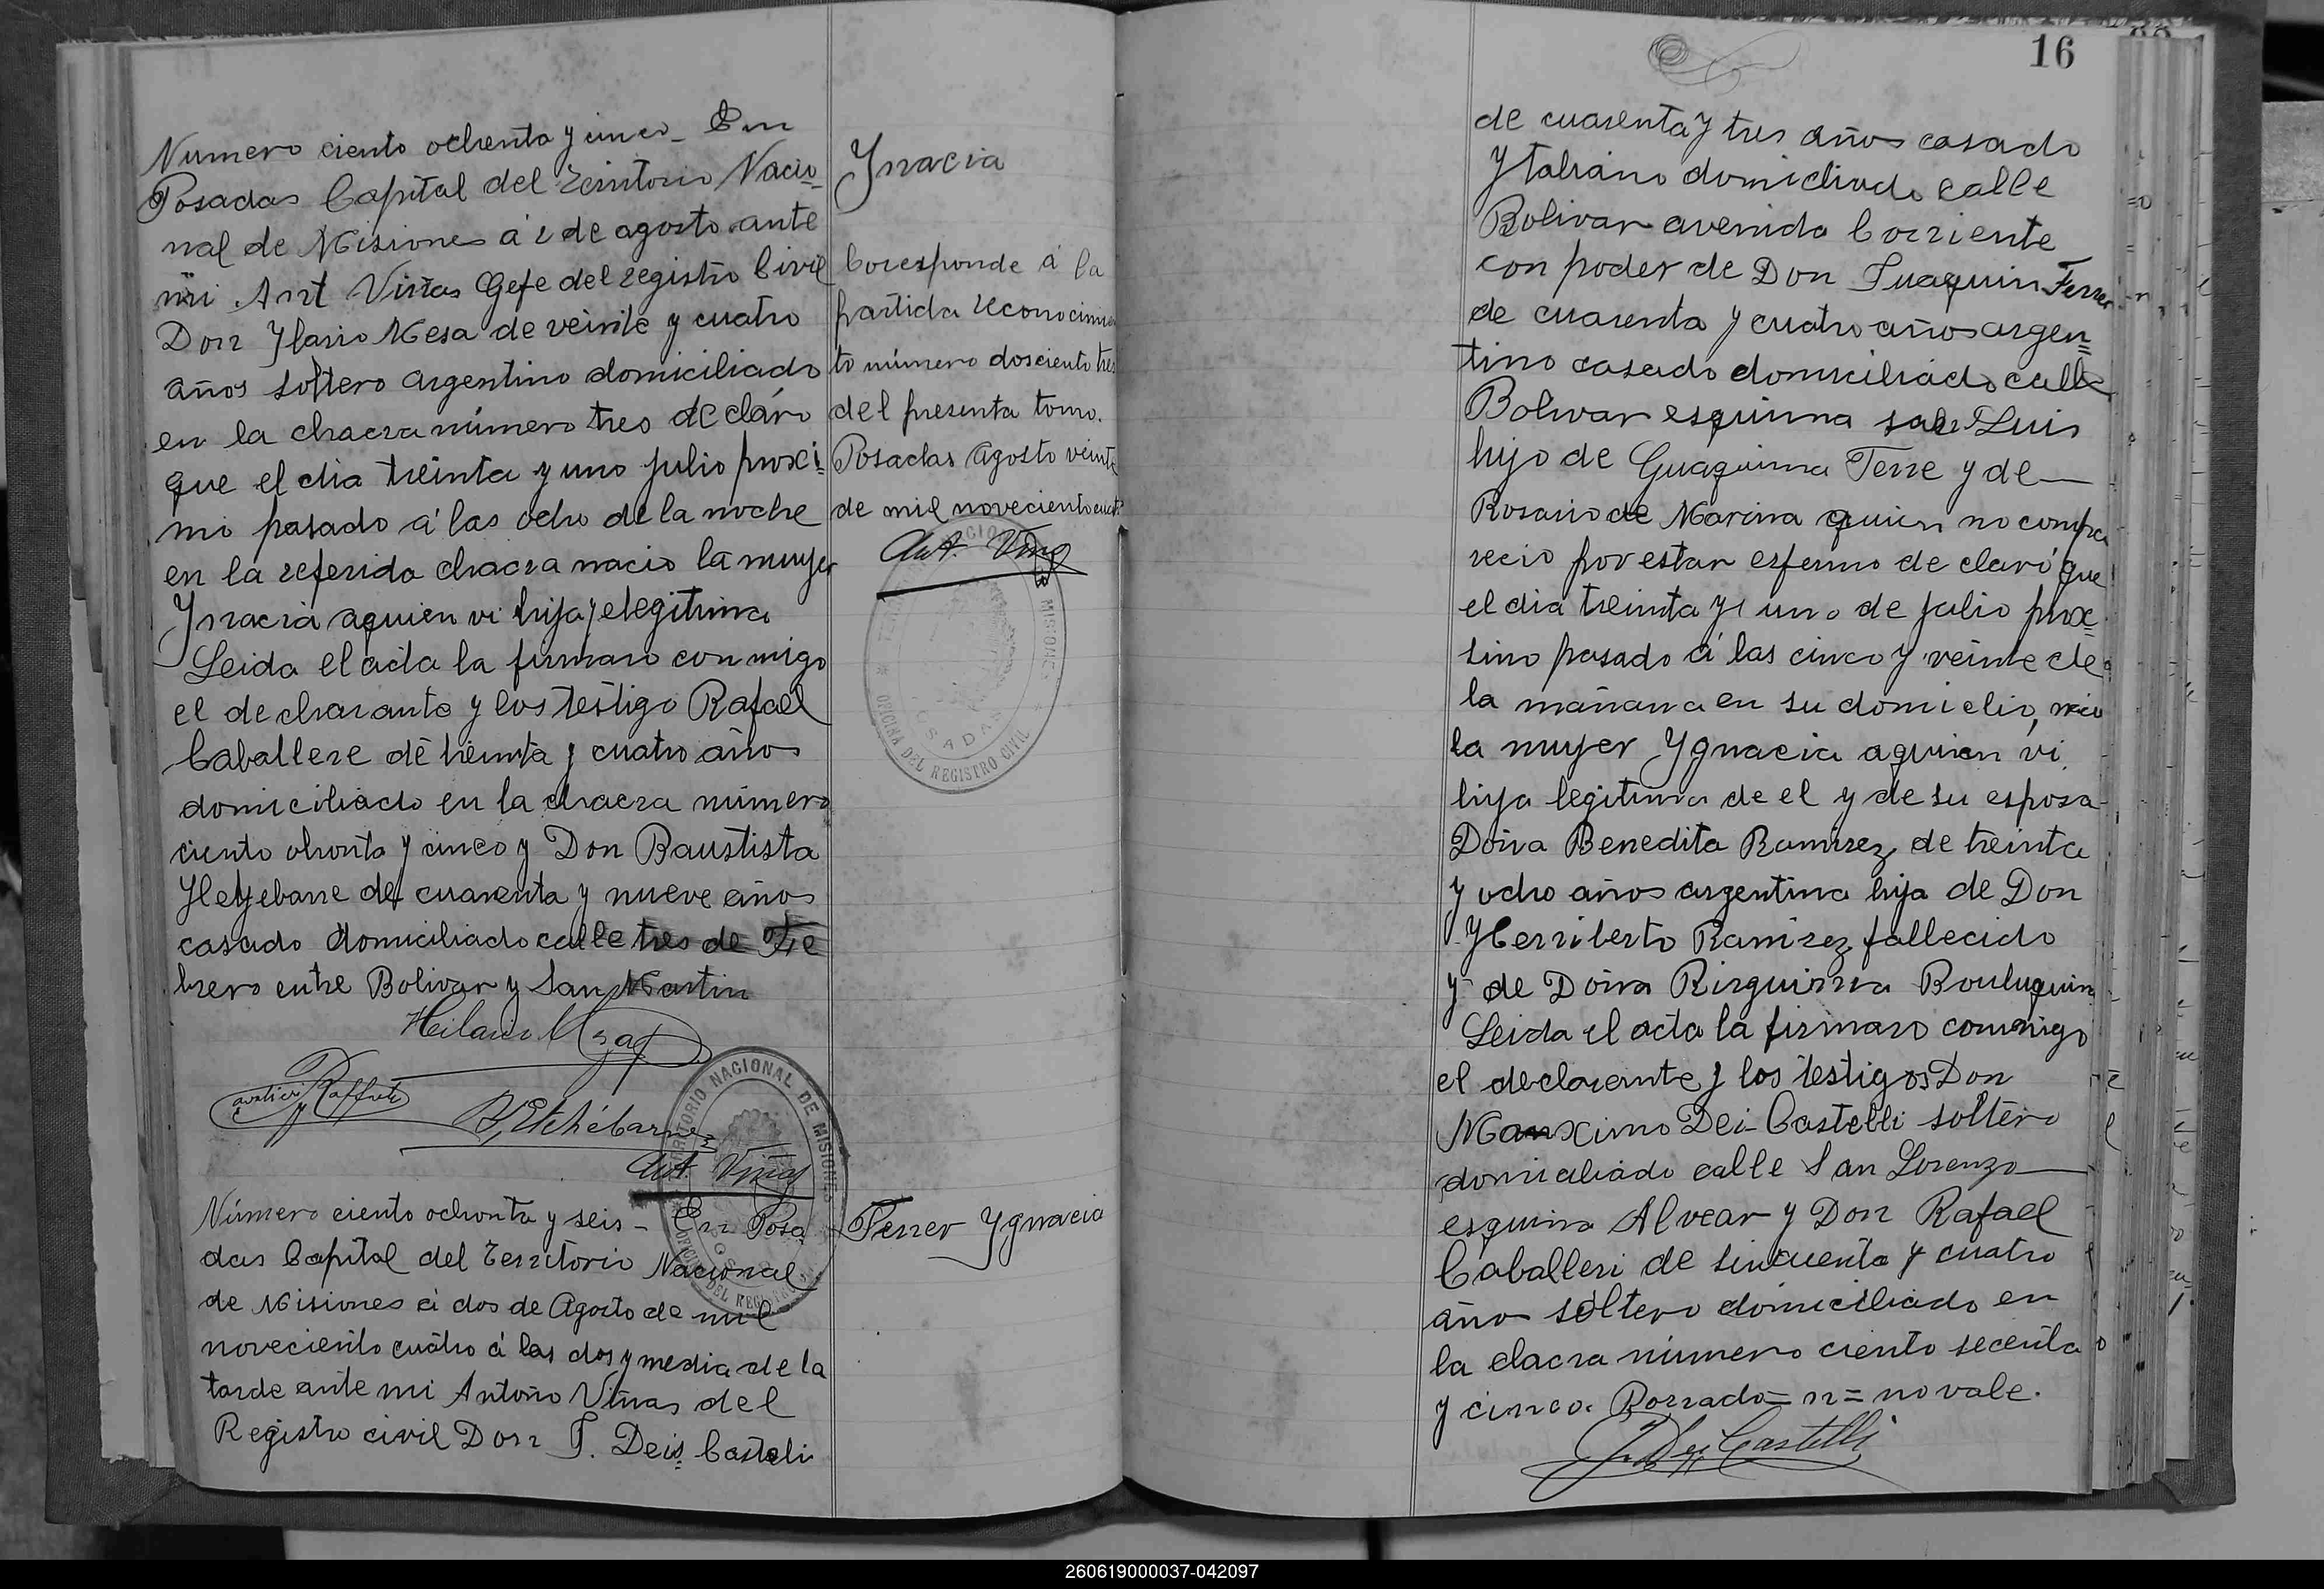 Numero ciento ochenta y cinco - En
Posadas Capital del Territorio Nacio-
nal de Misiones á 2 de agosto ante
mi Ant Viñas Gefe del registro Civil
Don Ylario Mesa de veinte y cuatro
años soltero argentino domiciliado
en la chacra número tres declaro
que el dia treinta y uno julio proxi=
mo pasado á las ocho de la noche
en la referida chacra nacio la muyer
Ynacia aquien vi hija
Leida el acta la firmaro conmigo
el declarante y los testigo Rafael
Caballere de treinta y cuatro año
domiciliado en la chacra número
ciento ochenta y cinco y Don Baustista
de cuarenta y nueve años
casado domiciliado calle tres de Fe
brero entre Bolivar y San Martin
Hilario Mesa
B. Etchébarne
Ant. Viñas
TERRITORIO NACIONAL DE MISIONES
OFICINA DEL REGISTRO CIVIL
Número ciento ochenta y seis - En Posa
das Capital del Territorio Nacional
de Misiones á dos de Agosto de mil
noveciento cuatro á las dos y media de la
tarde ante mi Antoño Viñas del
Registro civil Don J. Dei Casteli
Ynacia
Coresponde á la
partida reconocimien
to número dosciento tres
del presenta tomo.
Posadas Agosto veinte
de mil noveciento cuat
Ant. Viñas
MISIONES
OFICINA DEL REGISTRO CIVIL
POSADAS
Ferrer Ygnacia
16
de cuarenta y tres años casado
Ytaliano domicliado calle
Bolivar avenida Corriente
con poder de Don Juaquin Ferrer
de cuarenta y cuatro años argen=
tino casado domiciliado calle
Bolivar esquina san Luis
hijo de Guaquina Ferre y de
Rosario de Marina quien no compa
recio por estar enfermo declaró que
el dia treinta y uno de julio prox=
simo pasado á las cinco y veinte de
la mañana en su domicilio, nacio
la muyer Ygnacia aquien vi
hija legitima de el y de su esposa
Doña Benedita Ramirez de treinta
y ocho años argentina hija de Don
Yherriberto Ramirez fallecido
y de Doña
Leida el acta la firmaro conmigo
el declarante y los testigos Don
Manximo Dei Castelli soltero
domiciliado calle San Lorenzo
esquina Alvear y Don Rafael
Caballeri de sincuenta y cuatro
año soltero domiciliado en
la chacra número ciento secenta
y cinco. Borrado = n = no vale.
J. Dei Castelli
260619000037-042097